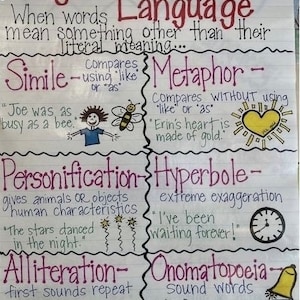 Language
When words
mean something other than their
literal meaning...
Simile - Compares
using "like"
or "as"
"Joe was as
busy as a bee."
Metaphor -
Compares WITHOUT using
"like" or "as"
"Erin's heart is
made of gold."
Personification -
gives animals or objects
human characteristics
"The stars danced
in the night."
Hyperbole -
extreme exaggeration
"I've been
waiting forever!"
Alliteration -
first sounds repeat
Onomatopoeia -
sound words